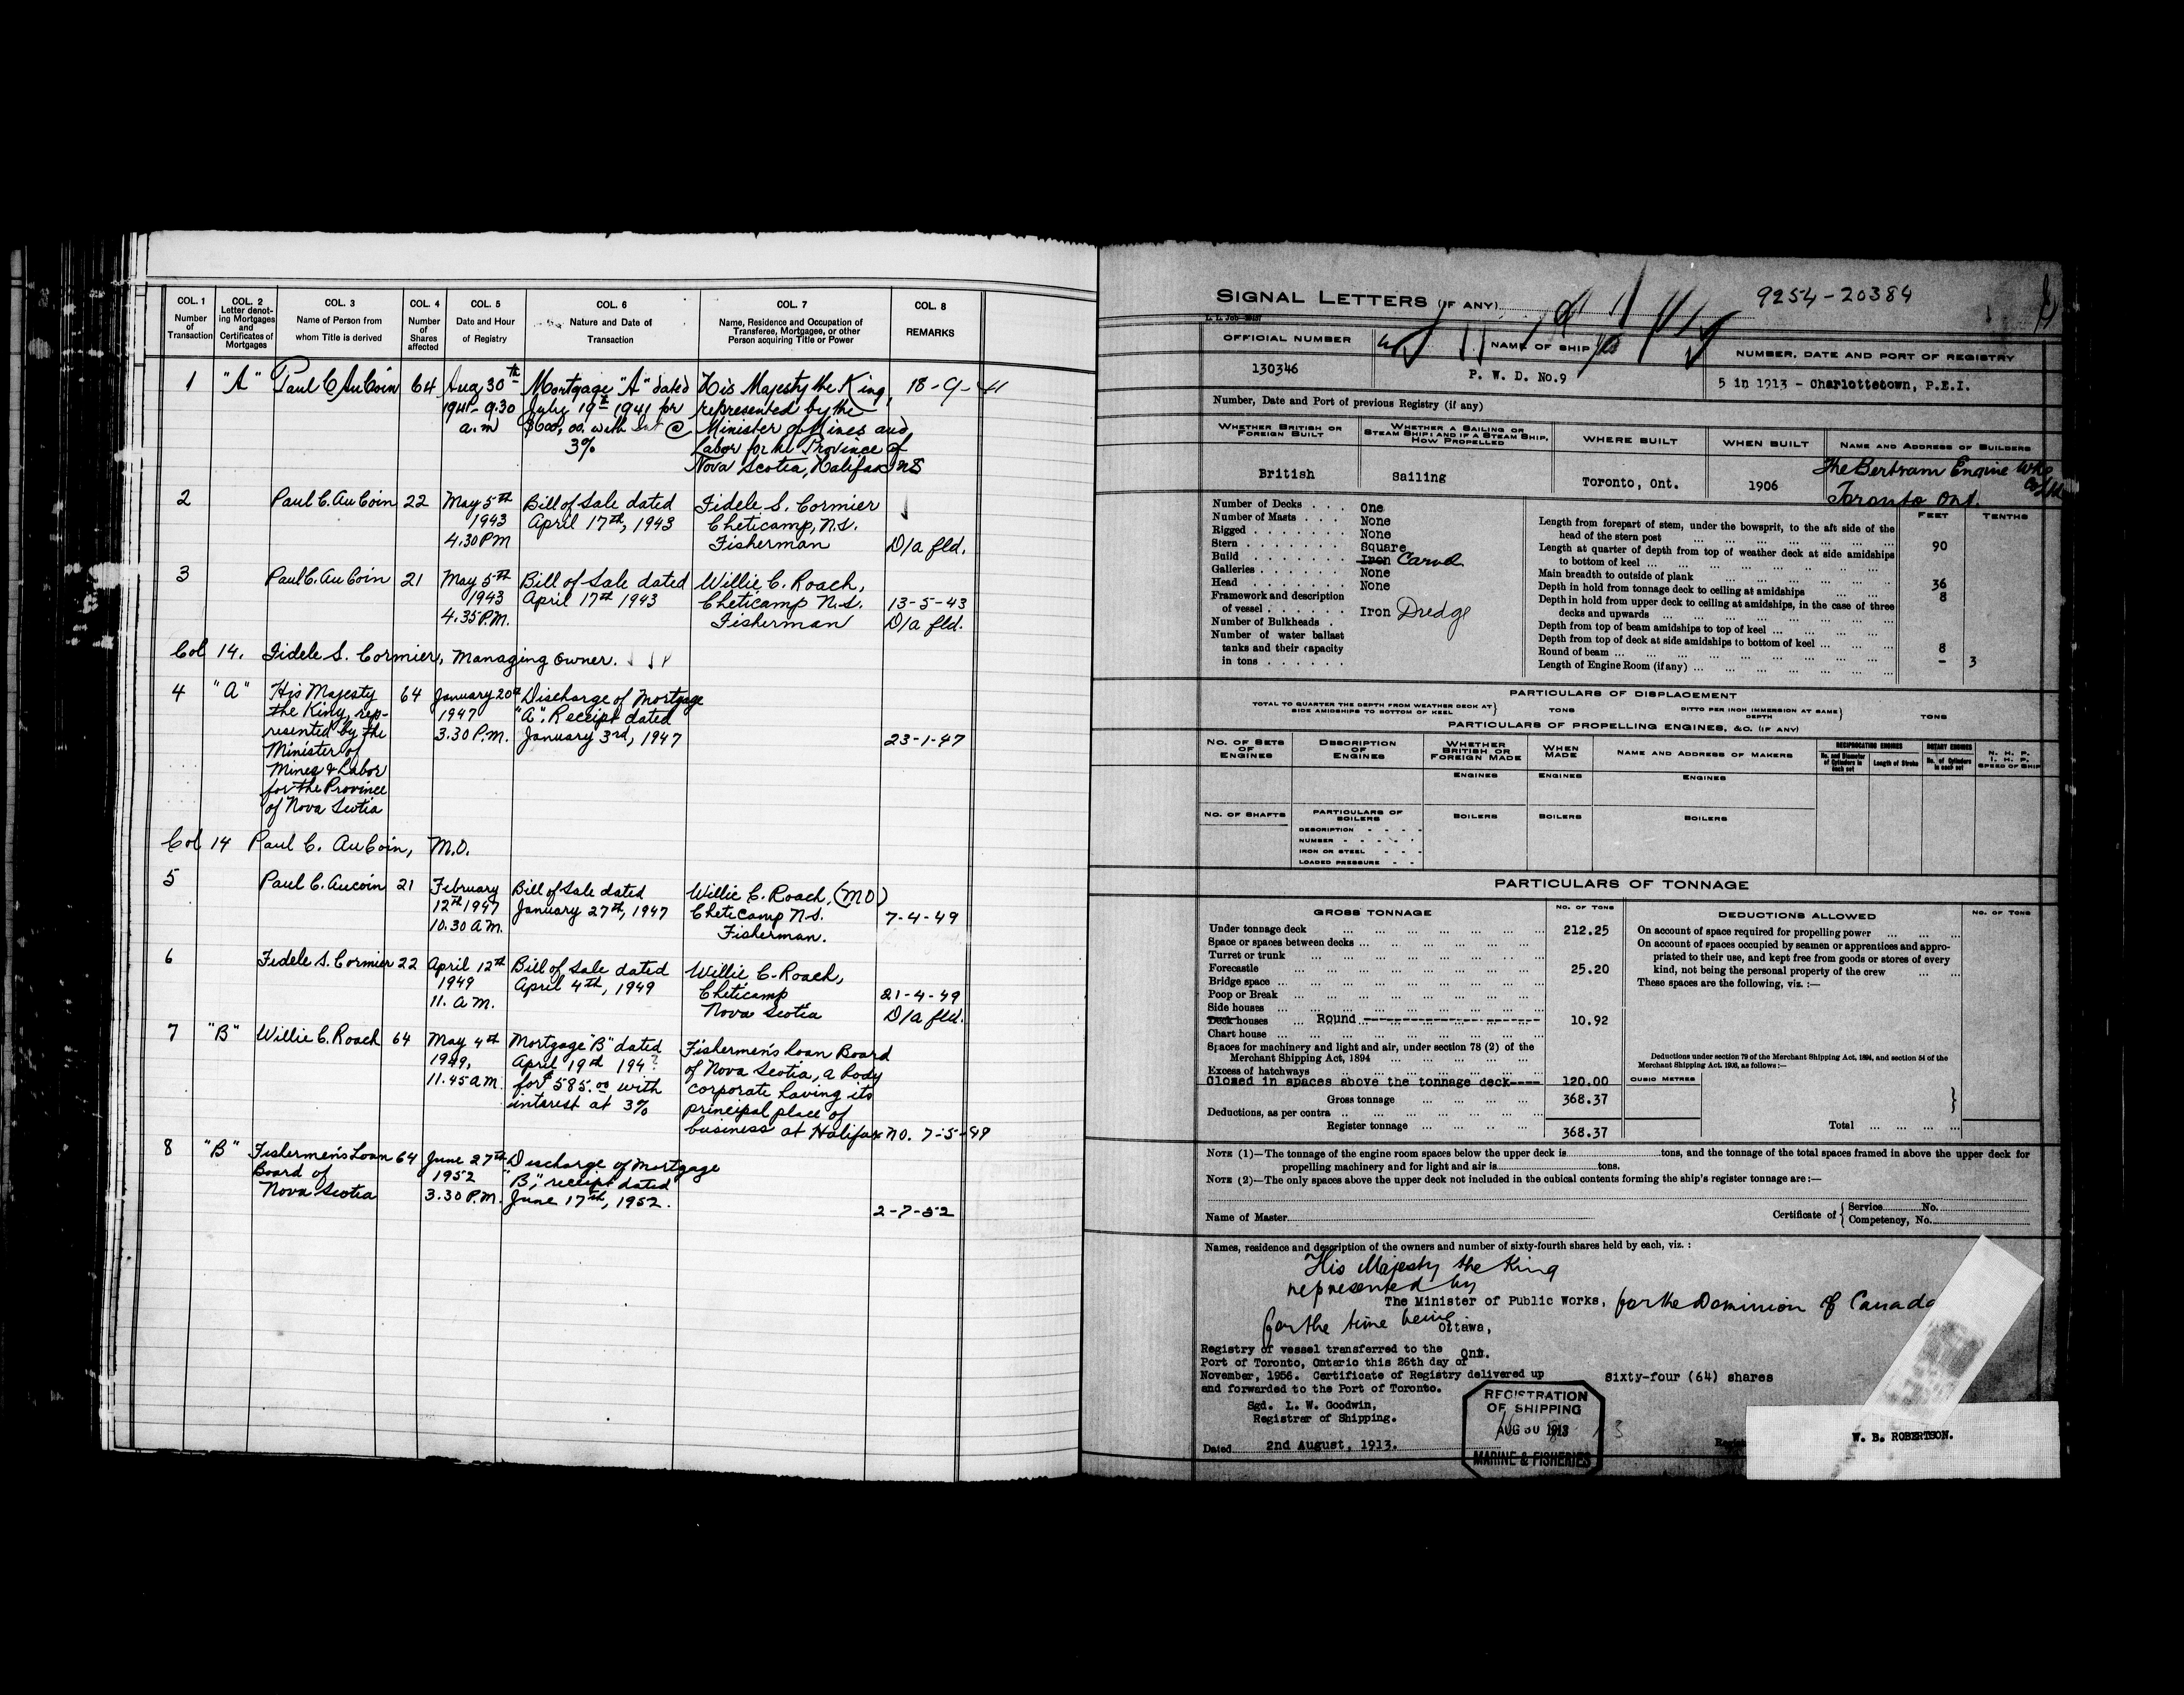 COL. 1
Number
of
Transaction
COL. 2
Letter denot-
ing Mortgages
and
Certificates of
Mortgages
COL. 3
Name of Person from
whom Title is derived
COL. 4
Number
of
Shares
affected
COL. 5
Date and Hour
of Registry
COL. 6
Nature and Date of
Transaction
COL. 7
Name, Residence and Occupation of
Transferee, Mortgagee, or other
Person acquiring Title or Power
COL. 8
REMARKS
1 "A" Paul C AuCoin 64 Aug 30th Mortgage "A" dated His Majesty the King, 18-9-41
1941- 9.30 July 19th 1941 for represented by the
a.m $600.00 with Int @ Minister of Mines and
3% Labor for the Province of
Nova Scotia, Halifax NS
2 Paul C. AuCoin 22 May 5th Bill of Sale dated Fidele S. Cormier
1943 April 17th, 1943 Cheticamp, N.S.
4.30 PM Fisherman D/a fld.
3 Paul C. AuCoin 21 May 5th Bill of Sale dated Willie C. Roach,
1943 April 17th 1943 Cheticamp N.S. 13-5-43
4.35 P.M. Fisherman D/a fld.
Col 14. Fidele S. Cormier, Managing Owner.
4 "A" His Majesty 64 January 20th Discharge of Mortgage
the King, rep- 1947 "A". Receipt dated
resented by the 3.30 P.M. January 3rd, 1947 23-1-47
Minister of
Mines & Labor
for the Province
of Nova Scotia
Col 14 Paul C. AuCoin, M.O.
5 Paul C. Aucoin 21 February Bill of Sale dated Willie C. Roach, (MO)
12th 1947 January 27th, 1947 Cheticamp N.S. 7-4-49
10.30 A.M. Fisherman.
6 Fidele S. Cormier 22 April 12th Bill of Sale dated Willie C. Roach,
1949 April 4th, 1949 Cheticamp 21-4-49
11. A.M. Nova Scotia D/a fld.
7 "B" Willie C. Roach 64 May 4th Mortgage "B" dated Fishermen's Loan Board
1949, April 19th 194? of Nova Scotia, a body
11.45 a.m. for $585.00 with corporate having its
interest at 3% principal place of
business at Halifax no. 7-5-49
8 "B" Fishermen's Loan 64 June 27th Discharge of Mortgage
Board of 1952 "B", receipt dated
Nova Scotia 3.30 P.M. June 17th, 1952.
2-7-52
SIGNAL LETTERS (IF ANY) 9254-20384
OFFICIAL NUMBER NAME OF SHIP NUMBER, DATE AND PORT OF REGISTRY
130346 P. W. D. No.9 5 in 1913 - Charlottetown, P.E.I.
Number, Date and Port of previous Registry (if any)
WHETHER BRITISH OR
FOREIGN BUILT
WHETHER A SAILING OR
STEAM SHIP: AND IF A STEAM SHIP,
HOW PROPELLED
WHERE BUILT WHEN BUILT NAME AND ADDRESS OF BUILDERS
British Sailing Toronto, Ont. 1906
The Bertram Engine Wks
Co Ltd
Toronto Ont.
Number of Decks . . . One
Number of Masts . . . None
Rigged . . . None
Stern . . . Square
Build . . . Iron Carvel
Galleries . . . None
Head . . . None
Framework and description
of vessel . . . Iron Dredge
Number of Bulkheads .
Number of water ballast
tanks and their capacity
in tons . . .
FEET TENTHS
Length from forepart of stem, under the bowsprit, to the aft side of the
head of the stern post 90
Length at quarter of depth from top of weather deck at side amidships
to bottom of keel
Main breadth to outside of plank 36
Depth in hold from tonnage deck to ceiling at amidships 8
Depth in hold from upper deck to ceiling at amidships, in the case of three
decks and upwards
Depth from top of beam amidships to top of keel
Depth from top of deck at side amidships to bottom of keel 8
Round of beam - 3
Length of Engine Room (if any)
PARTICULARS OF DISPLACEMENT
TOTAL TO QUARTER THE DEPTH FROM WEATHER DECK AT
SIDE AMIDSHIPS TO BOTTOM OF KEEL
TONS
DITTO PER INCH IMMERSION AT SAME
DEPTH
TONS
PARTICULARS OF PROPELLING ENGINES, &C. (IF ANY)
NO. OF SETS
OF
ENGINES
DESCRIPTION
OF
ENGINES
WHETHER
BRITISH OR
FOREIGN MADE
WHEN
MADE
NAME AND ADDRESS OF MAKERS
RECIPROCATING ENGINES
No. and Diameter
of Cylinders in
each set
Length of Stroke
ROTARY ENGINES
No. of Cylinders
in each set
N. H. P.
I. H. P.
SPEED OF SHIP
ENGINES ENGINES ENGINES
NO. OF SHAFTS
PARTICULARS OF
BOILERS
BOILERS BOILERS BOILERS
DESCRIPTION
NUMBER
IRON OR STEEL
LOADED PRESSURE
PARTICULARS OF TONNAGE
GROSS TONNAGE NO. OF TONS DEDUCTIONS ALLOWED NO. OF TONS
Under tonnage deck 212.25
Space or spaces between decks
Turret or trunk
Forecastle 25.20
Bridge space
Poop or Break
Side houses
Deck houses Round 10.92
Chart house
Spaces for machinery and light and air, under section 78 (2) of the
Merchant Shipping Act, 1894
Excess of hatchways
Closed in spaces above the tonnage deck---- 120.00
Gross tonnage 368.37
Deductions, as per contra
Register tonnage 368.37
On account of space required for propelling power
On account of spaces occupied by seamen or apprentices and appro-
priated to their use, and kept free from goods or stores of every
kind, not being the personal property of the crew
These spaces are the following, viz. :—
Deductions under section 79 of the Merchant Shipping Act, 1894, and section 54 of the
Merchant Shipping Act. 1906, as follows :—
CUBIC METRES
Total
NOTE (1)—The tonnage of the engine room spaces below the upper deck is tons, and the tonnage of the total spaces framed in above the upper deck for
propelling machinery and for light and air is tons.
NOTE (2)—The only spaces above the upper deck not included in the cubical contents forming the ship's register tonnage are :—
Name of Master Certificate of
Service No.
Competency, No.
Names, residence and description of the owners and number of sixty-fourth shares held by each, viz. :
His Majesty the King
represented by
The Minister of Public Works, for the Dominion of Canada
for the time being
Ottawa,
Ont.
Registry of vessel transferred to the
Port of Toronto, Ontario this 26th day of
November, 1956. Certificate of Registry delivered up
and forwarded to the Port of Toronto.
Sixty-four (64) shares
Sgd. L. W. Goodwin,
Registrar of Shipping.
REGISTRATION
OF SHIPPING
AUG 30 1913
MARINE & FISHERIES
Dated 2nd August, 1913.
W. B. ROBERTSON.